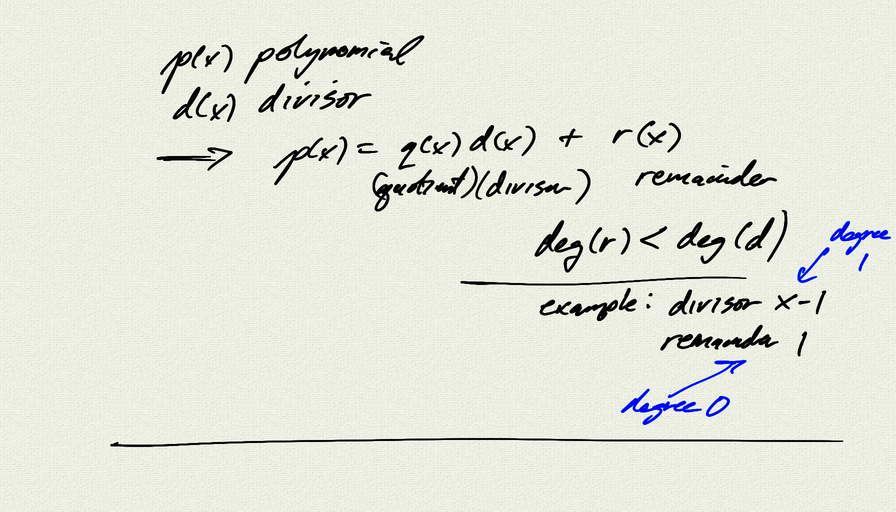 p(x) polynomial
d(x) divisor
⟹ p(x) = q(x) d(x) + r(x)
(quotient)(divisor) remainder
deg(r) < deg(d)
degree
1
example: divisor x-1
remainder 1
degree 0